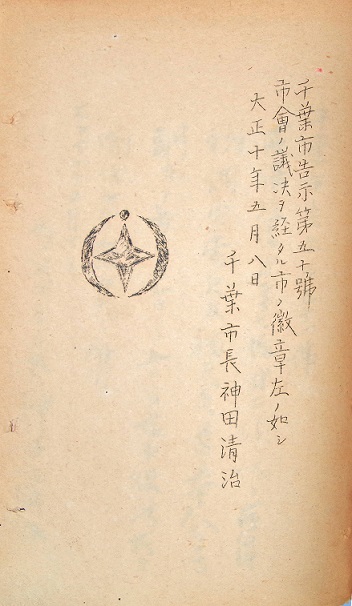 千葉市告示第五十號
市會ノ議決ヲ経タル市ノ徽章左ノ如シ
大正十年五月八日
千葉市長神田清治